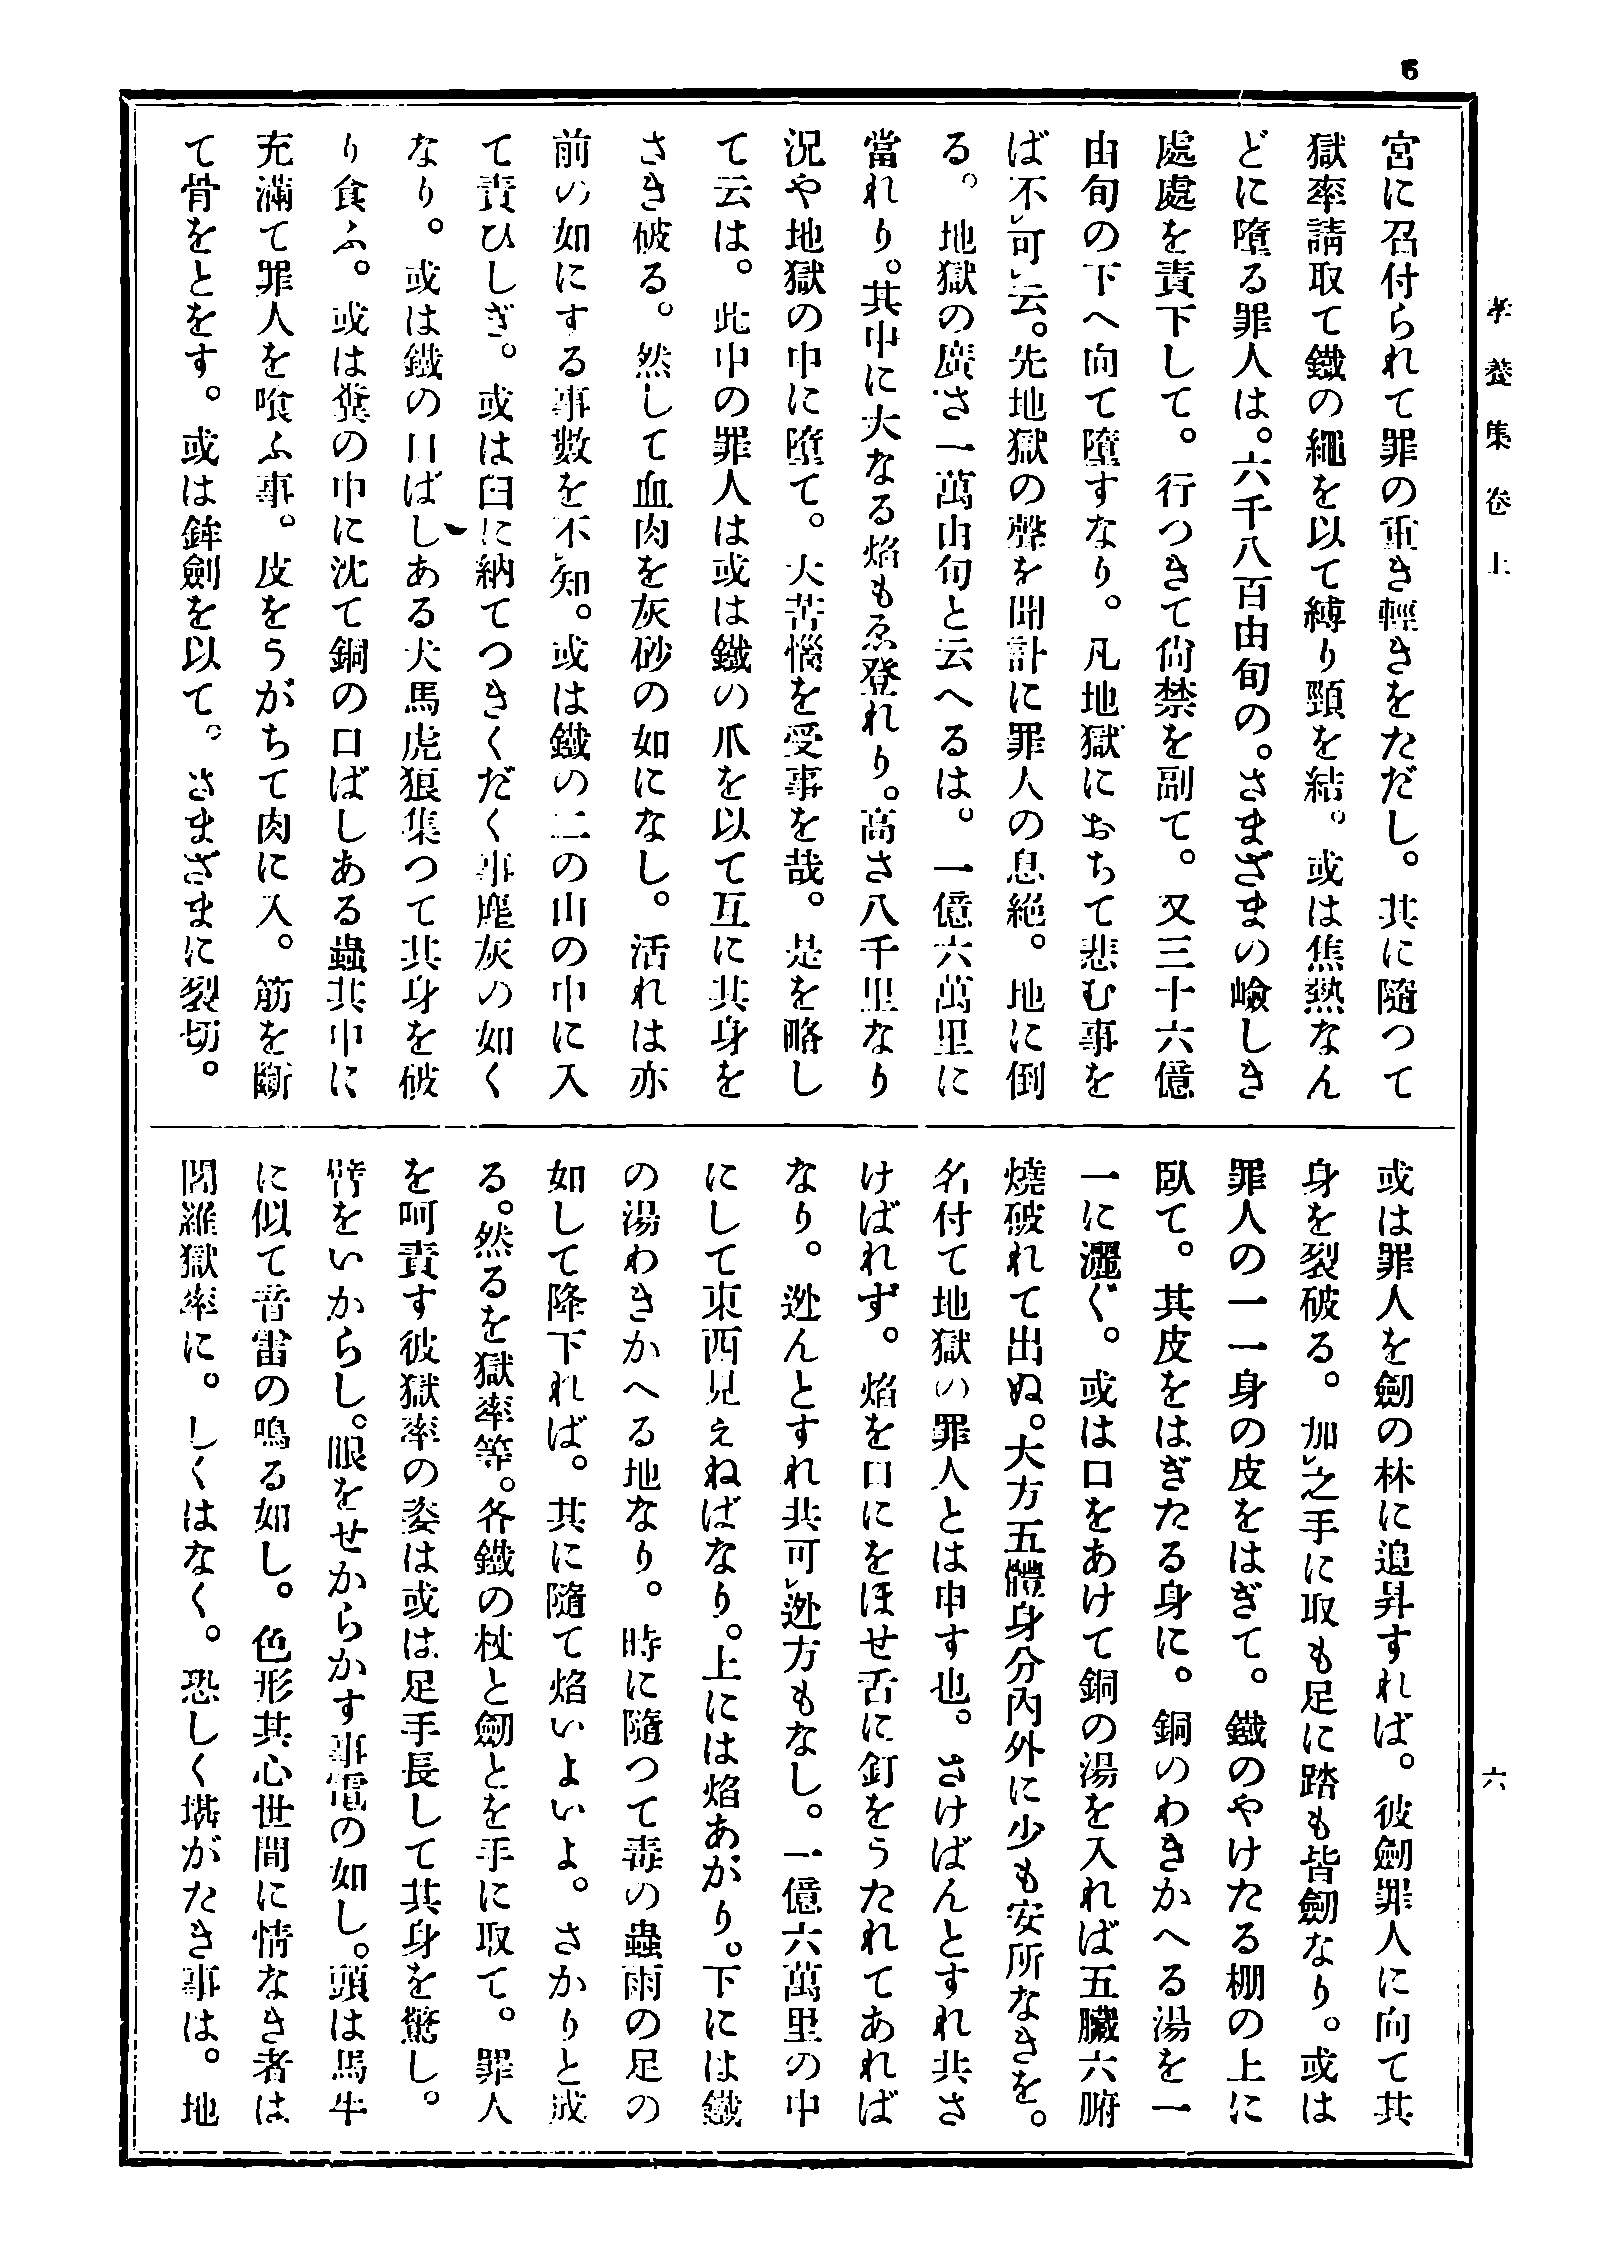 6
孝養集卷上
六
宮に召付られて罪の重き輕きをただし。其に隨つて
獄率請取て鐵の繩を以て縛り頸を結。或は焦熱なん
どに墮る罪人は。六千八百由旬の。さまざまの嶮しき
處處を責下して。行つきて尙禁を副て。又三十六億
由旬の下へ向て墮すなり。凡地獄におちて悲む事を
ば不㆑可㆑云。先地獄の聲を聞計に罪人の息絶。地に倒
る。地獄の廣さ一萬由旬と云へるは。一億六萬里に
當れり。其中に大なる焰もゑ登れり。高さ八千里なり
況や地獄の中に墮て。大苦惱を受事を哉。是を略し
て云は。此中の罪人は或は鐵の爪を以て互に其身を
さき破る。然して血肉を灰砂の如になし。活れは亦
前の如にする事數を不㆑知。或は鐵の二の山の中に入
て責ひしぎ。或は臼に納てつきくだく事塵灰の如く
なり。或は鐵の口ばしある犬馬虎狼集つて其身を破
り食ふ。或は糞の中に沈て銅の口ばしある蟲其中に
充滿て罪人を喰ふ事。皮をうがちて肉に入。筋を斷
て骨をとをす。或は鉾劍を以て。さまざまに裂切。
或は罪人を劒の林に追昇すれば。彼劒罪人に向て其
身を裂破る。加㆑之手に取も足に踏も皆劒なり。或は
罪人の一一身の皮をはぎて。鐵のやけたる棚の上に
臥て。其皮をはぎたる身に。銅のわきかへる湯を一
一に灑ぐ。或は口をあけて銅の湯を入れば五臟六腑
燒破れて出ぬ。大方五體身分內外に少も安所なきを。
名付て地獄の罪人とは申す也。さけばんとすれ共さ
けばれず。焰を口にをほせ舌に釘をうたれてあれば
なり。逃んとすれ共可㆑逃方もなし。一億六萬里の中
にして東西見えねばなり。上には焰あがり。下には鐵
の湯わきかへる地なり。時に隨つて毒の蟲雨の足の
如して降下れば。其に隨て焰いよいよ。さかりと成
る。然るを獄率等。各鐵の杖と劒とを手に取て。罪人
を呵責す彼獄率の姿は或は足手長して其身を驚し。
臂をいからし。眼をせからかす事電の如し。頭は馬牛
に似て音雷の鳴る如し。色形其心世間に情なき者は
閻羅獄率に。しくはなく。恐しく堪がたき事は。地